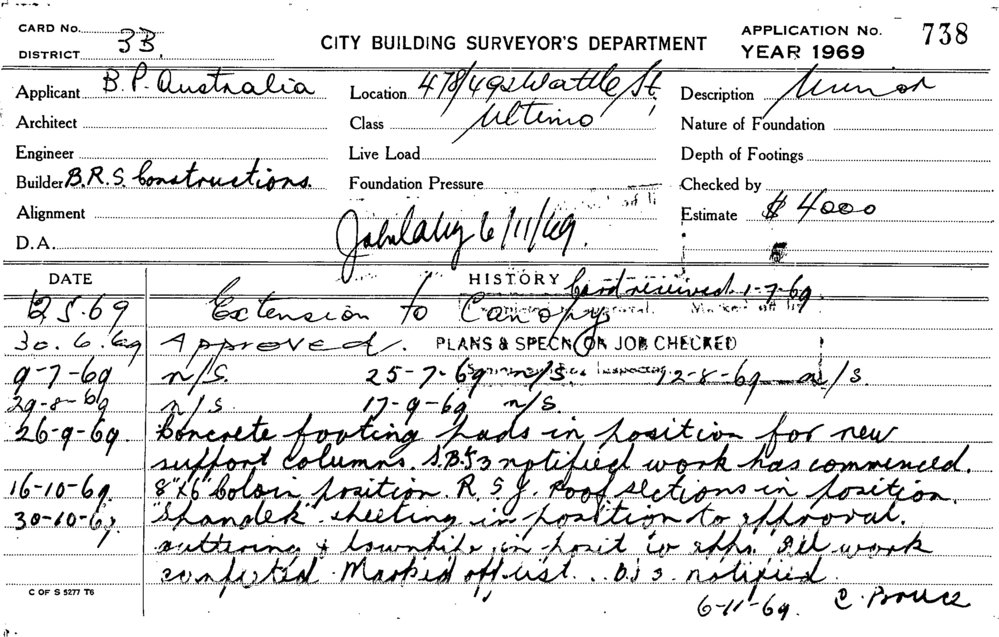 CARD No.
DISTRICT 3B.
CITY BUILDING SURVEYOR'S DEPARTMENT
APPLICATION No. 738
YEAR 1969
Applicant B.P. Australia
Location 478/492 Wattle St.
Description Minor
Architect
Class Ultimo
Nature of Foundation
Engineer
Live Load
Depth of Footings
Builder B.R.S. Constructions.
Foundation Pressure
Checked by
Alignment
Estimate $ 4000
D.A.
6/11/69.
DATE
HISTORY Card received 1-7-69.
12.5.69 Extension to Canopy
30.6.69 Approved. PLANS & SPECN ON JOB CHECKED
9-7-69 n/S. 25-7-69 n/S. 12-8-69 n/S.
29-8-69 n/S. 17-9-69 n/S.
26-9-69. Concrete footing pads in position for new
support columns. notified work has commenced.
16-10-69. 8"x6" in position. R.S.J. roof sections in position.
30-10-69. "Spandek" sheeting in position to approval.
Guttering & downpipe in posit to appr. All work
completed. Marked off list. notified.
C OF S 5277 T6
6-11-69.